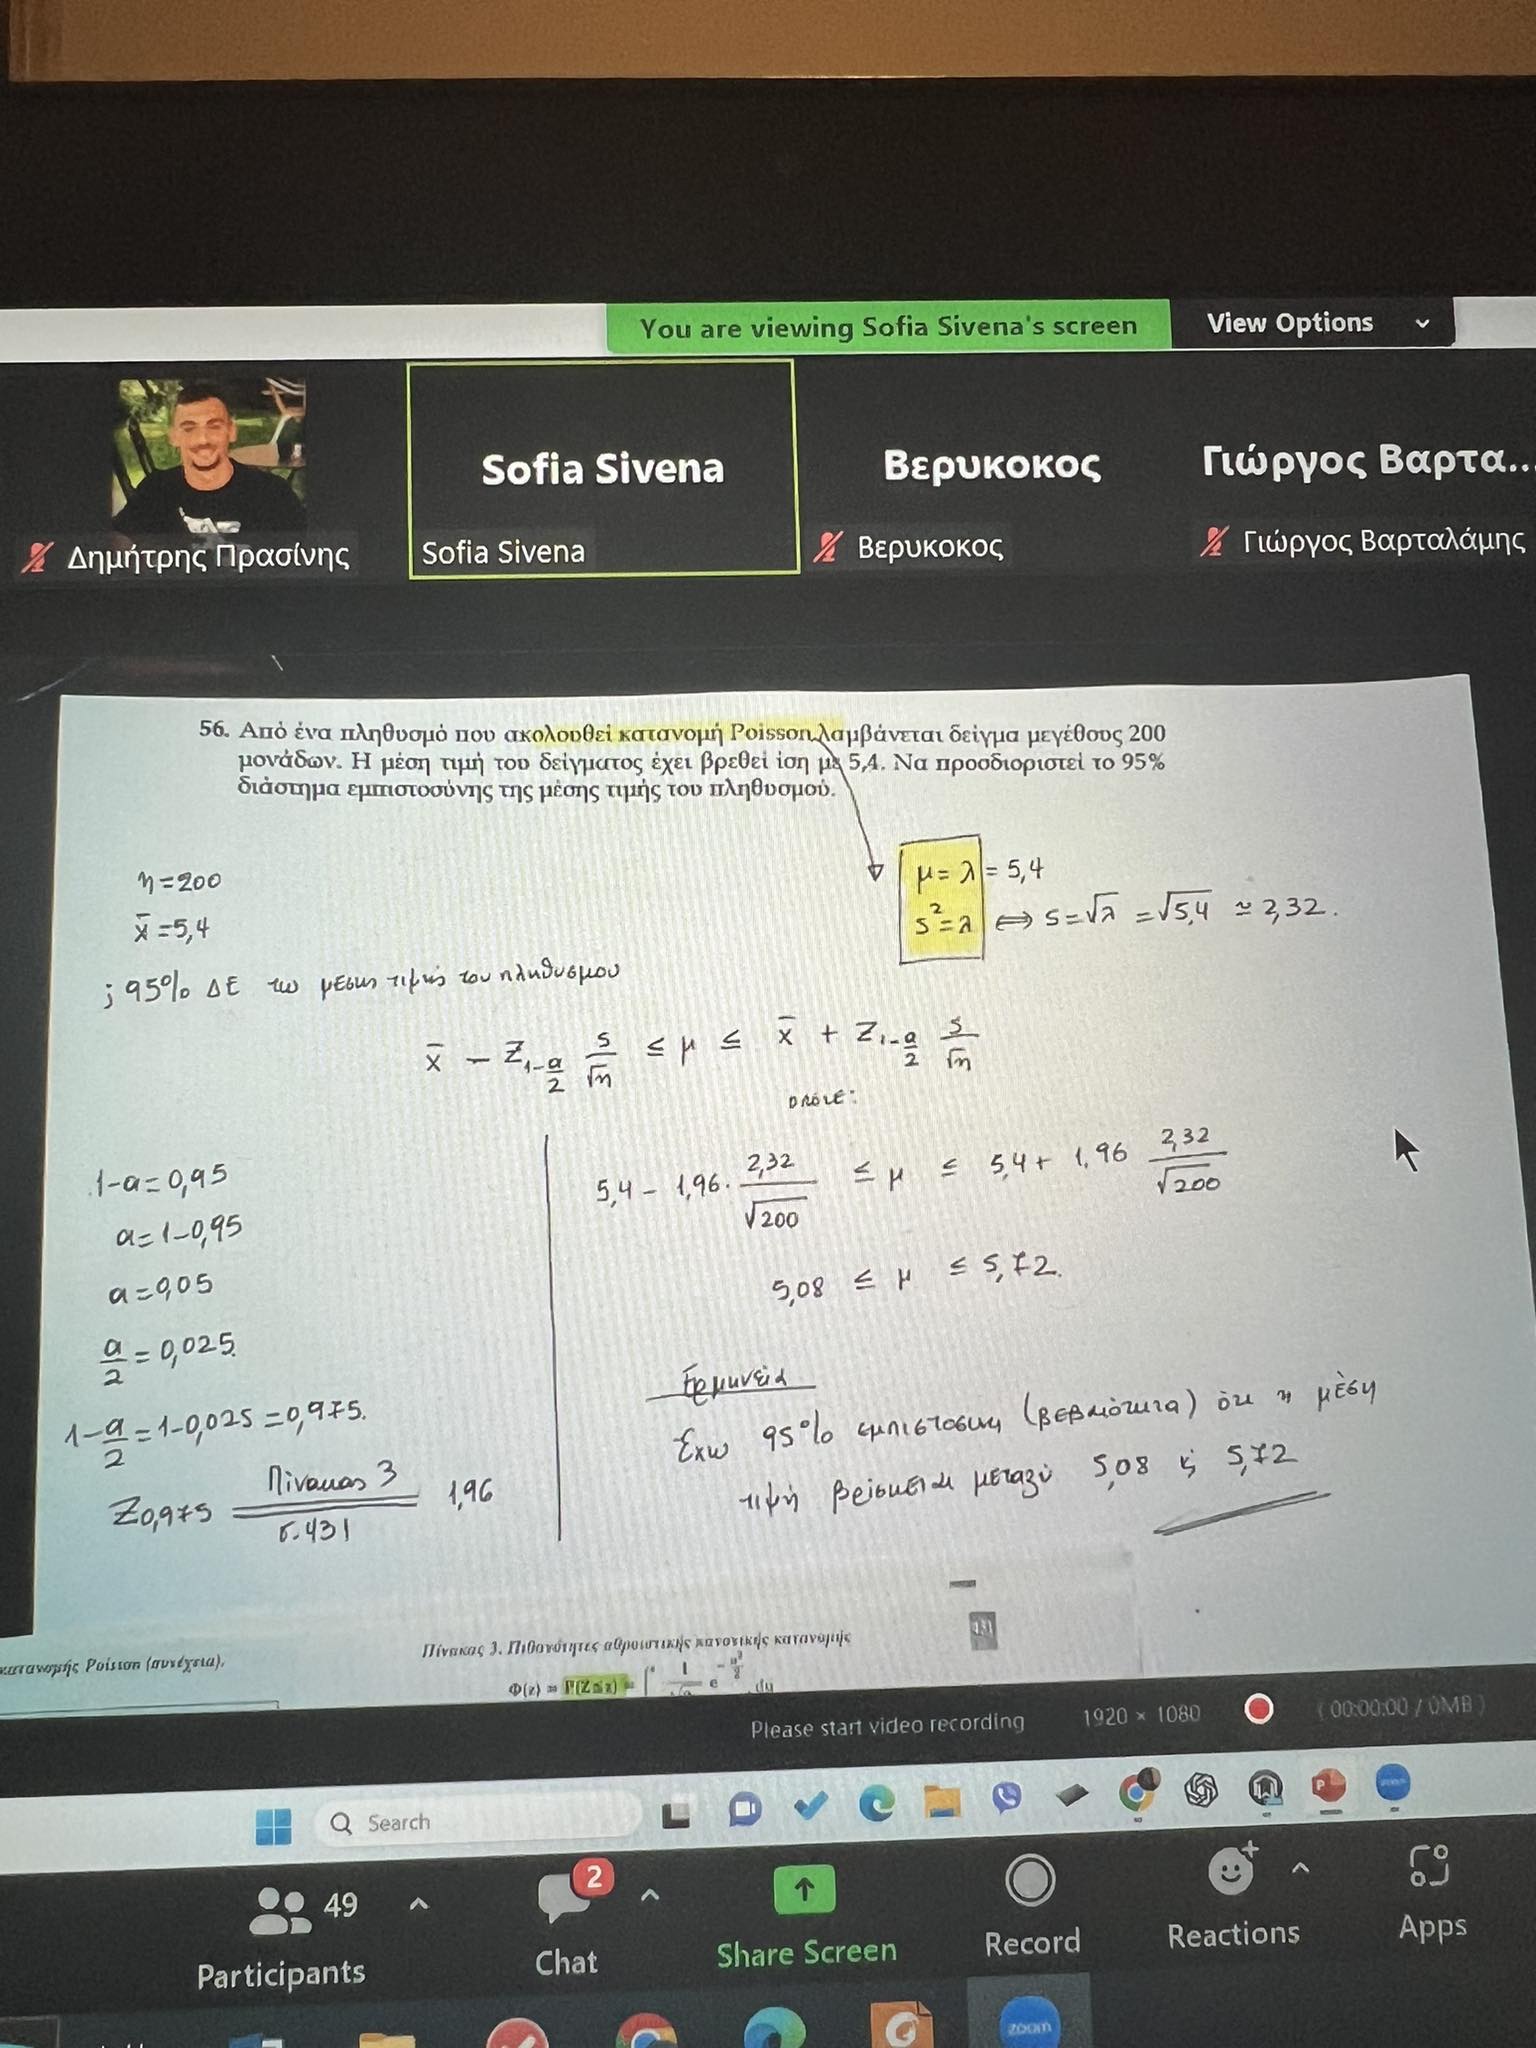 You are viewing Sofia Sivena's screen
View Options
Sofia Sivena
Βερυκοκος
Γιώργος Βαρτα...
Δημήτρης Πρασίνης
Sofia Sivena
Βερυκοκος
Γιώργος Βαρταλάμης
56. Από ένα πληθυσμό που ακολουθεί κατανομή Poisson λαμβάνεται δείγμα μεγέθους 200
μονάδων. Η μέση τιμή του δείγματος έχει βρεθεί ίση με 5,4. Να προσδιοριστεί το 95%
διάστημα εμπιστοσύνης της μέσης τιμής του πληθυσμού.
μ = λ = 5,4
s² = λ ⟺ s = √λ = √5,4 ≃ 2,32.
η = 200
x̄ = 5,4
; 95% ΔΕ της μέσης τιμής του πληθυσμού
x̄ − Z₁₋α/2 s/√η ≤ μ ≤ x̄ + Z₁₋α/2 s/√η
οπότε:
1−α = 0,95
α = 1−0,95
α = 0,05
α/2 = 0,025.
1−α/2 = 1−0,025 = 0,975.
Z0,975 Πίνακας 3 σ.431 1,96
5,4 − 1,96 · 2,32/√200 ≤ μ ≤ 5,4 + 1,96 2,32/√200
5,08 ≤ μ ≤ 5,72.
Ερμηνεία
Έχω 95% εμπιστοσύνη (βεβαιότητα) ότι η μέση
τιμή βρίσκεται μεταξύ 5,08 κ 5,72
κατανομής Poisson (συνέχεια).
Πίνακας 3. Πιθανότητες αθροιστικής κανονικής κατανομής
431
Φ(z) = P(Z≤z) =
Please start video recording
1920 × 1080
(00:00:00 / 0MB)
Search
49
Participants
2
Chat
Share Screen
Record
Reactions
Apps
zoom